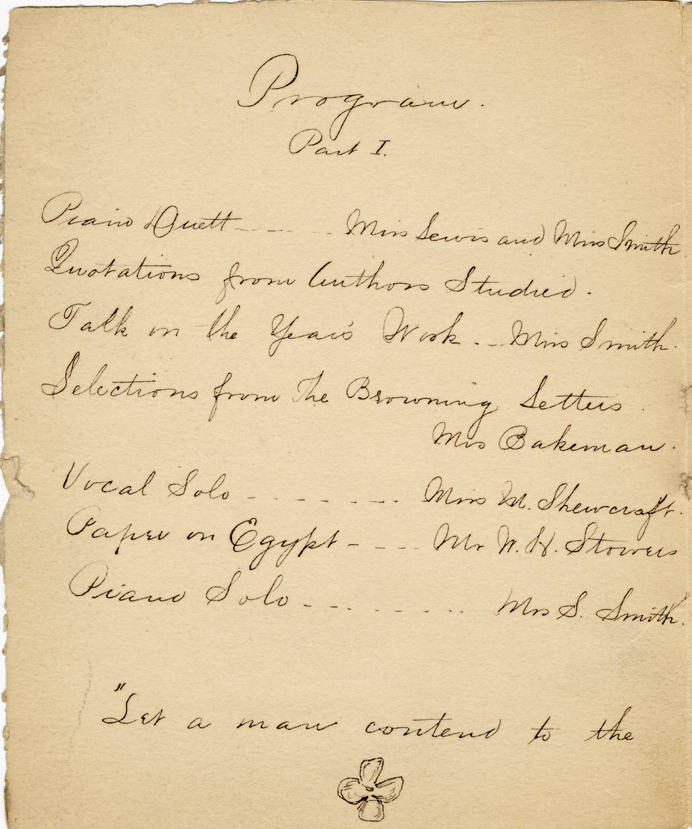 Program.
Part I.
Piano Duett ------ Miss Lewis and Miss Smith
Quotations from Authors Studied.
Talk on the Year's Work. -- Miss Smith.
Selections from the Browning Letters.
Mrs Bakeman.
Vocal Solo ------- Miss M. Shewcraft.
Paper on Egypt ---- Mr W. H. Stowers
Piano Solo --------- Mrs S. Smith.
"Let a man contend to the